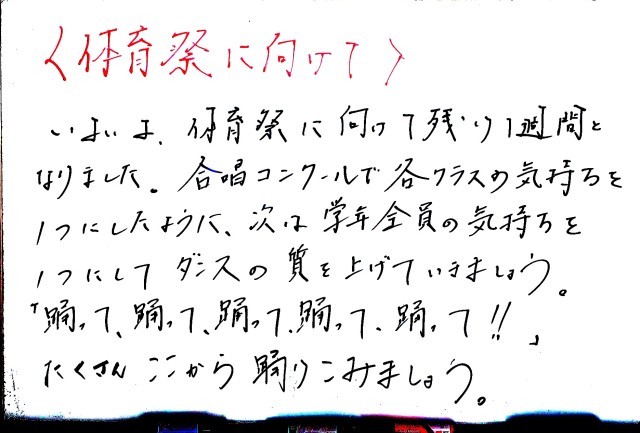 〈体育祭に向けて〉
いよいよ、体育祭に向けて残り1週間と
なりました。合唱コンクールで各クラスの気持ちを
1つにしたように、次は学年全員の気持ちを
1つにしてダンスの質を上げていきましょう。
「踊って、踊って、踊って、踊って、踊って!!」
たくさんここから踊りこみましょう。